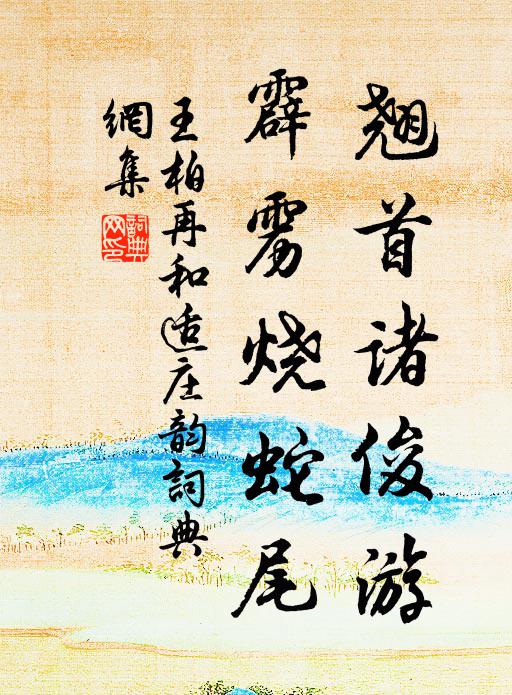 翘首诸俊游
霹雳烧蛇尾
王柏再和适庄韵詞典
網集
詞典
网印